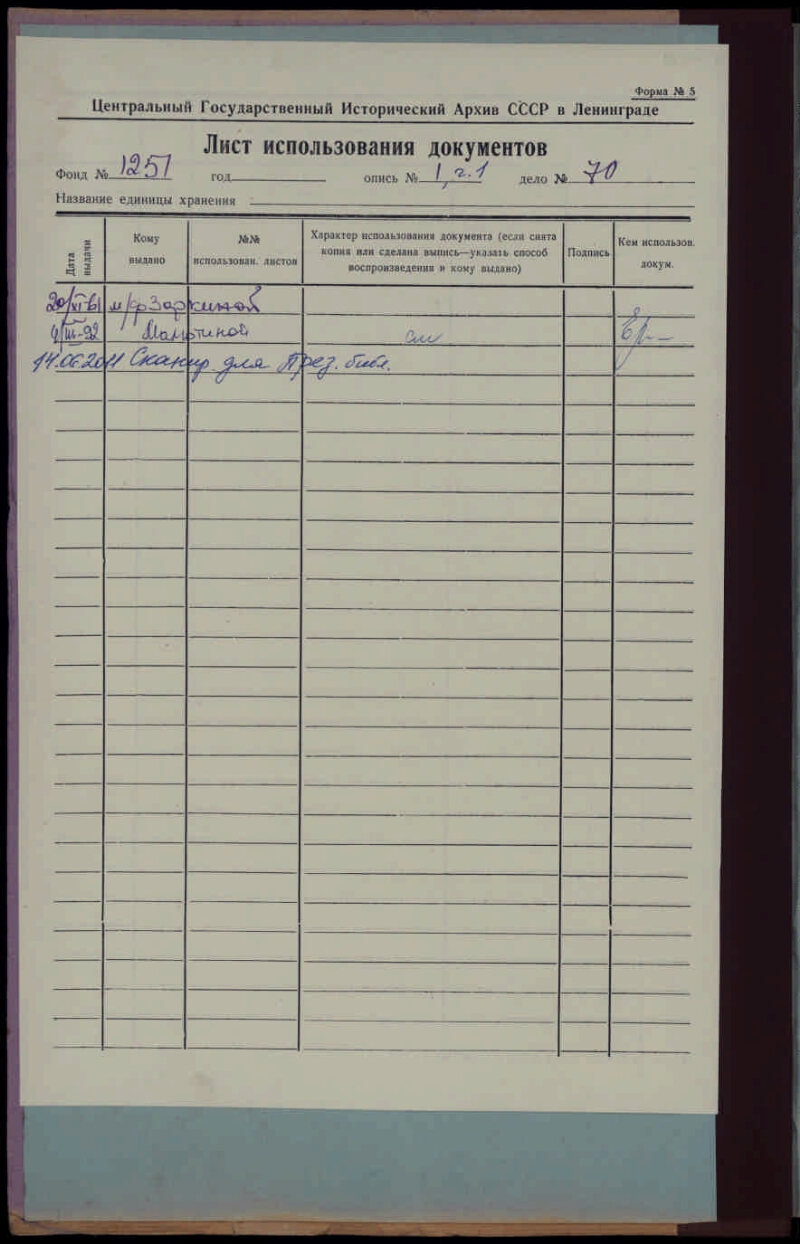 Форма № 5
Центральный Государственный Исторический Архив СССР в Ленинграде
Лист использования документов
Фонд № 1251 год опись № 1, ч.1 дело № 70
Название единицы хранения
Дата выдачи
Кому выдано
№№ использован. листов
Характер использования документа (если снята копия или сделана выпись—указать способ воспроизведения и кому выдано)
Подпись
Кем использов. докум.
20/XI-61 м/ф Заркиной
9/III-92 Мартиной см
14.06.2011 Сканир. для През. библ.